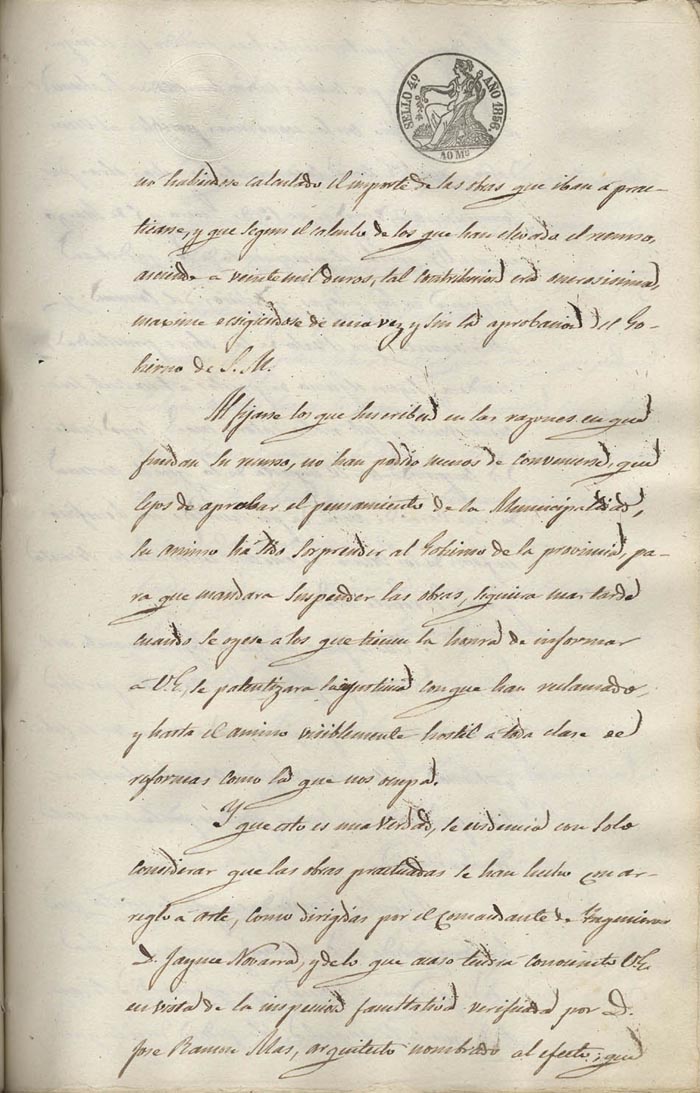 SELLO 4º AÑO 1856.
40 Ms
no habiendose calculado el importe de las obras que iban a prac-
ticarse, y que segun el calculo de los que han elevado el recurso,
asciende a veinte mil duros, tal contribucion era onerosisima,
maxime ecsigiendose de una vez y sin la aprobacion del Go-
bierno de S.M.
Al fijarse los que suscriben en las razones en que
fundan su recurso, no han podido menos de convencerse, que
lejos de aprobar el pensamiento de la Municipalidad,
su animo ha sido sorprender al Gobierno de la provincia, pa-
ra que mandara suspender las obras, siquiera mas tarde
cuando se oyese a los que tienen la honra de informar
a V.E, se patentizara la injusticia con que han reclamado,
y hasta el animo visiblemente hostil a toda clase de
reformas como la que nos ocupa.
Y que esto es una verdad, se evidencia con solo
considerar que las obras practicadas se han hecho con ar-
reglo a arte, como dirigidas por el Comandante de Ingenieros
D. Jayme Navarra, y de lo que acaso tendra conocimto V.E.
en vista de la inspeccion facultativa verificada por D.
Jose Ramon Mas, arquitecto nombrado al efecto; que